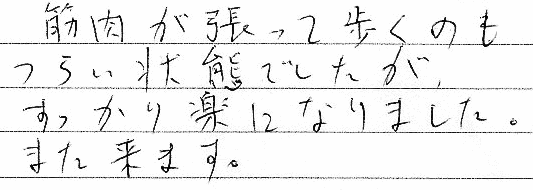 筋肉が張って歩くのも
つらい状態でしたが、
すっかり楽になりました。
また来ます。